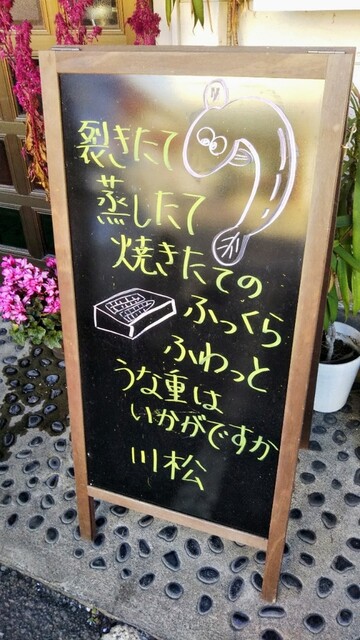 裂きたて
蒸したて
焼きたての
ふっくら
ふわっと
うな重は
いかがですか
川松